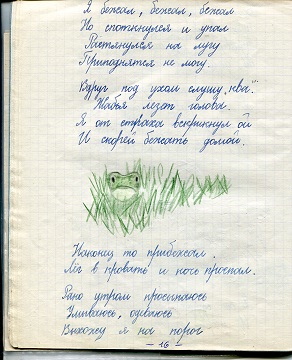 Я бежал, бежал, бежал
Но споткнулся и упал
Растянулся на лугу
Приподнятся не могу.
Вдруг под ухом слышу „ква".
Жабья лезет голова.
Я от страха вскрикнул ой
И скорей бежать домой.
Наконец то прибежал.
Лёг в кровать и ночь проспал.
Рано утром просыпаюсь
Умываюсь, одеваюсь
Выхожу я на порог
- 16 -